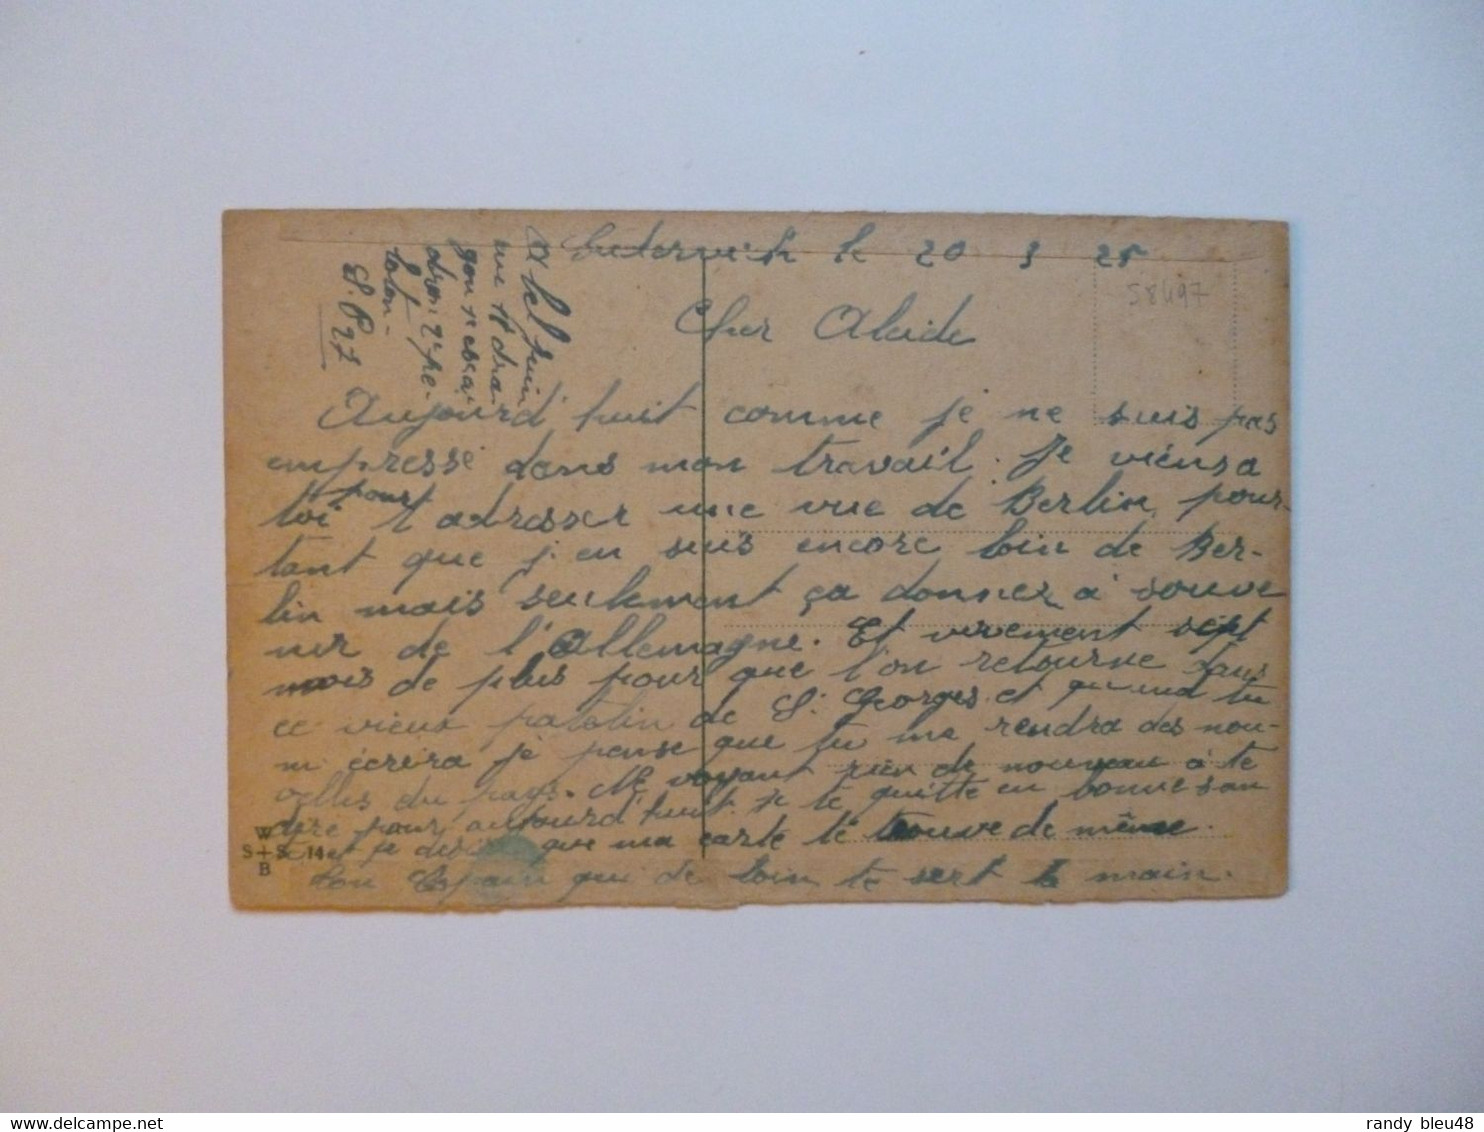 le 20 3 25
58497
Cher Alcide
Aujourd'huit comme je ne suis pas
empressé dans mon travail. Je viens a
toi pour t'adresser une vue de Berlin, pour-
tant que j'en suis encore loin de Ber-
lin mais seulement ça donner à souve
nir de l'Allemagne. Et vivement sept
mois de plus pour que l'on retourne dans
ce vieux patelin de St Georges. et quand tu
m'écrira je pense que tu me rendra des nou-
velles du pays. Ne voyant rien de nouveau à te
dire pour aujourd'huit. je te quitte en bonne san
té et je désire que ma carte te trouve de même.
Ton Copain qui de loin te sert la main.
Abel Juin
2e
S.P 27
W
S+S 14
B
randy bleu48